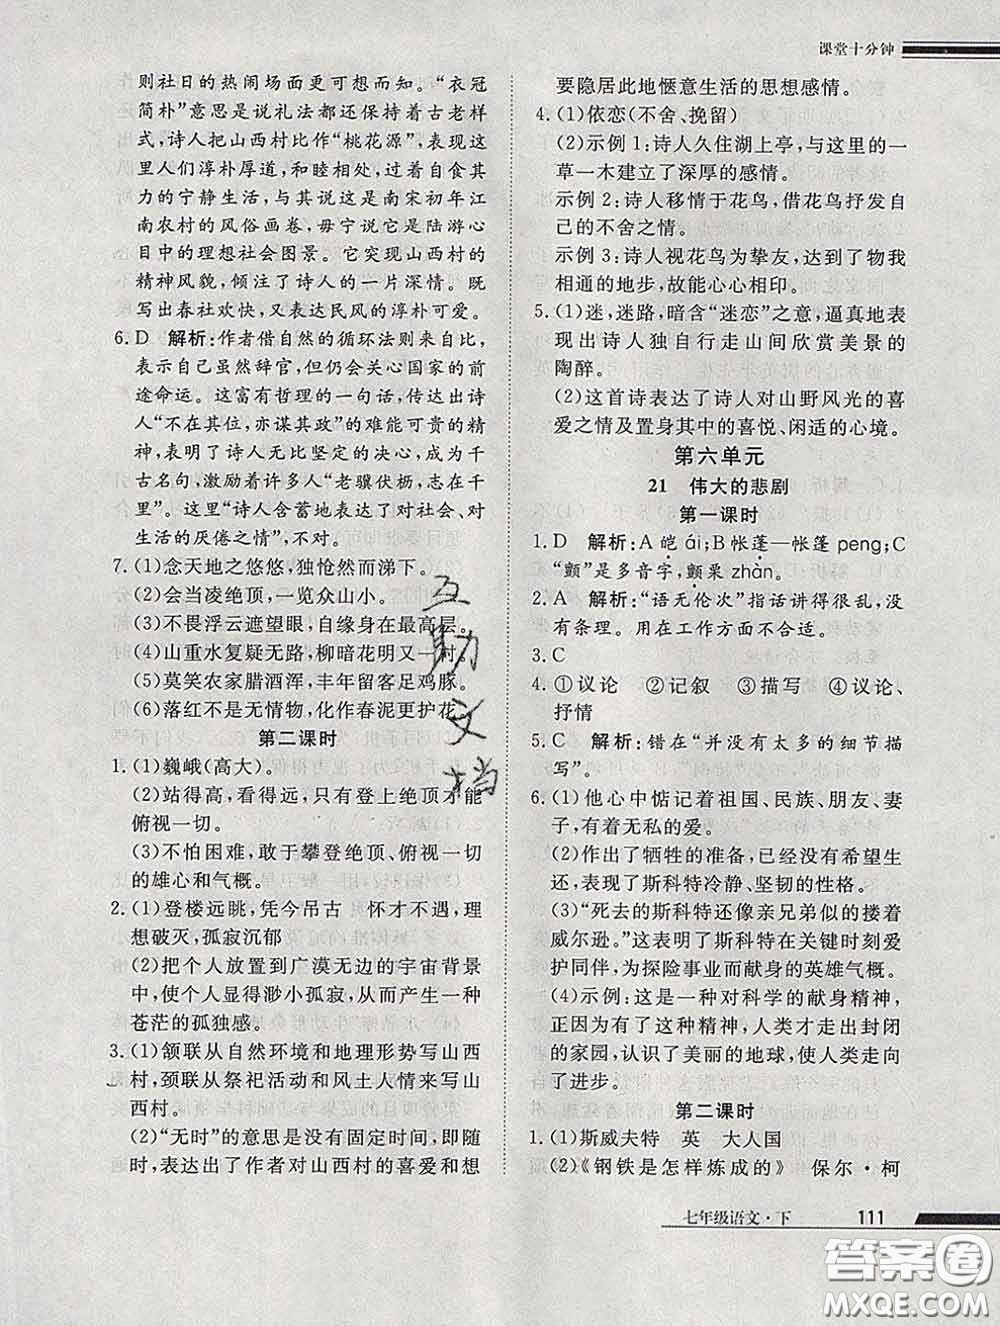 课堂十分钟
则社日的热闹场面更可想而知。“衣冠
简朴”意思是说礼法都还保持着古老样
式，诗人把山西村比作“桃花源”，表现
这里人们淳朴厚道，和睦相处，过着自食其
力的宁静生活，与其说这是南宋初年江
南农村的风俗画卷，毋宁说它是陆游心
目中的理想社会图景。它突现山西村的
精神风貌，倾注了诗人的一片深情。既
写出春社欢快，又表达民风的淳朴可爱。
6. D　解析：作者借自然的循环法则来自比，
表示自己虽然辞官，但仍会关心国家的前
途命运。这富有哲理的一句话，传达出诗
人“不在其位，亦谋其政”的难能可贵的
精神，表明了诗人无比坚定的决心，成为千
古名句，激励着许多人“老骥伏枥，志在千
里”。这里“诗人含蓄地表达了对社会、对
对生活的厌倦之情”，不对。
7. (1)念天地之悠悠，独怆然而涕下。
(2)会当凌绝顶，一览众山小。
(3)不畏浮云遮望眼，自缘身在最高层。
(4)山重水复疑无路，柳暗花明又一村。
(5)莫笑农家腊酒浑，丰年留客足鸡豚。
(6)落红不是无情物，化作春泥更护花。
第二课时
1. (1)巍峨(高大)。
(2)站得高，看得远，只有登上绝顶才能
俯视一切。
(3)不怕困难，敢于攀登绝顶、俯视一切
的雄心和气概。
2. (1)登楼远眺，凭今吊古　怀才不遇，理
想破灭，孤寂沉郁
(2)把个人放置到广漠无边的宇宙背景
中，使个人显得渺小孤寂，从而产生一种
苍茫的孤独感。
3. (1)颔联从自然环境和地理形势写山西
村，颈联从祭祀活动和风土人情来写山
西村。
(2)“无时”的意思是没有固定时间，即随
时，表达出了作者对山西村的喜爱和想
要隐居此地惬意生活的思想感情。
4. (1)依恋(不舍、挽留)
(2)示例1：诗人久住湖上亭，与这里的一
草一木建立了深厚的感情。
示例2：诗人移情于花鸟，借花鸟抒发自
己的不舍之情。
示例3：诗人视花鸟为挚友，达到了物我
相通的地步，故能心心相印。
5. (1)迷，迷路，暗含“迷恋”之意，逼真地表
现出诗人独自行走山间欣赏美景的
陶醉。
(2)这首诗表达了诗人对山野风光的喜
爱之情及置身其中的喜悦、闲适的心境。
第六单元
21　伟大的悲剧
第一课时
1. D　解析：A皑ái；B帐蓬—帐篷peng；C
“颤”是多音字，颤栗zhàn。
2. A　解析：“语无伦次”指话讲得很乱，没
有条理。用在工作方面不合适。
3. C
4. ①议论　②记叙　③描写　④议论、
抒情
5. C　解析：错在“并没有太多的细节描
写”。
6. (1)他心中惦记着祖国、民族、朋友、妻
子，有着无私的爱。
(2)作出了牺牲的准备，已经没有希望生
还，表现了斯科特冷静、坚韧的性格。
(3)“死去的斯科特还像亲兄弟似的搂着
威尔逊。”这表明了斯科特在关键时刻爱
护同伴，为探险事业而献身的英雄气概。
(4)示例：这是一种对科学的献身精神，
正因为有了这种精神，人类才走出封闭
的家园，认识了美丽的地球，使人类走向
了进步。
第二课时
1. (1)斯威夫特　英　大人国
(2)《钢铁是怎样炼成的》　保尔·柯
互助文档
七年级语文·下　111
答案圈
MXQE.COM